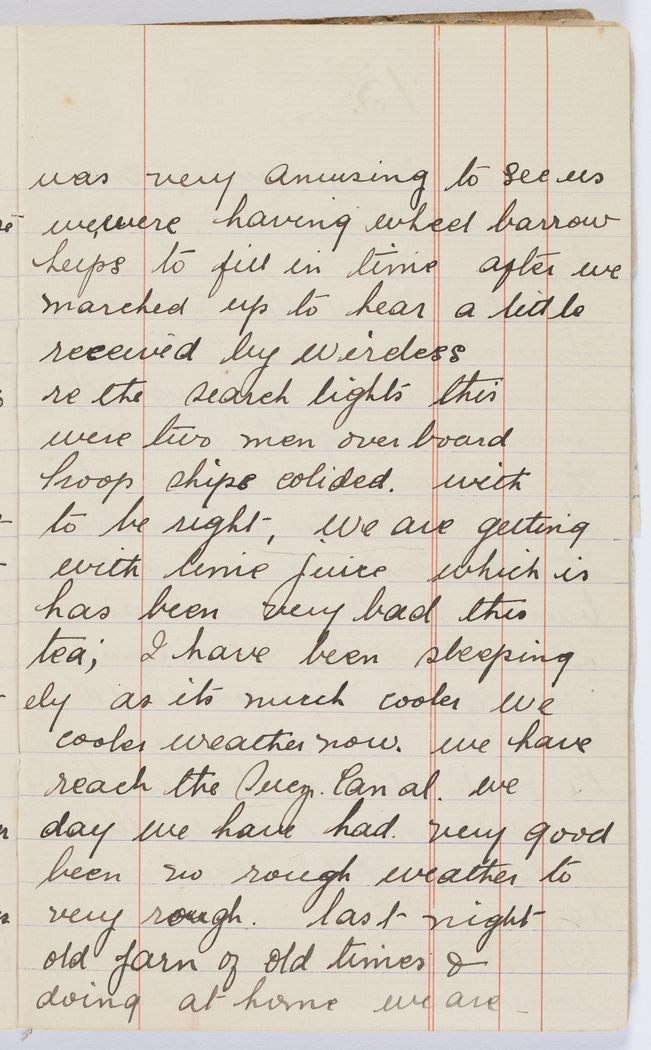 was very amusing to see us
we were having wheel barrow
helps to fill in time after we
marched up to hear a little
received by wireless
re the search lights this
were two men over board
troop ships colided. with
to be right, we are getting
with lime juice which is
has been very bad this
tea; I have been sleeping
ely as its much cooler we
cooler weather now. we have
reach the Suez. Canal. we
day we have had. very good
been no rough weather to
very rough. last night
old yarn of old times &
doing at home we are -